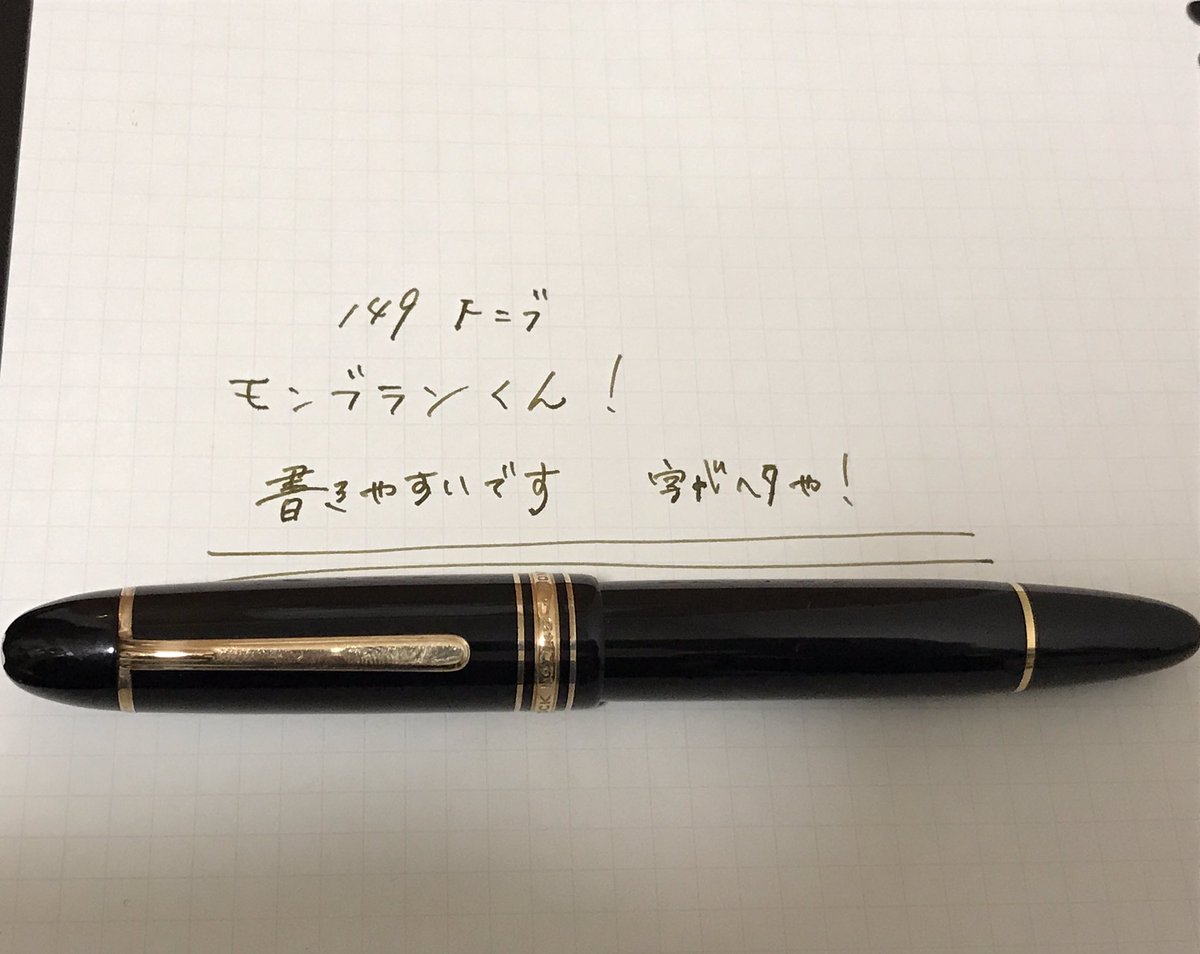 149 Fニブ
モンブランくん！
書きやすいです 字がヘタや！